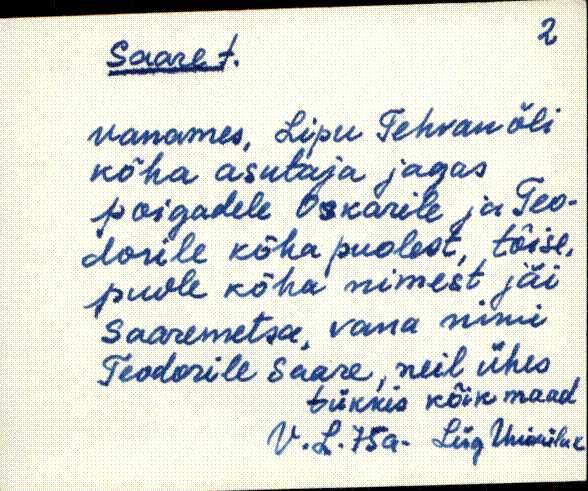 2
Saare t.
vanames, Lipu Tehvan õli
kõha asutaja jagas
poigadele Oskarile ja Teo-
dorile kõha puolest, tõise,
puole kõha nimest jäi
Saaremetsa, vana nimi
Teodorile Saare, neil ühes
tükkis kõik maad
V. L. 75a. Liig